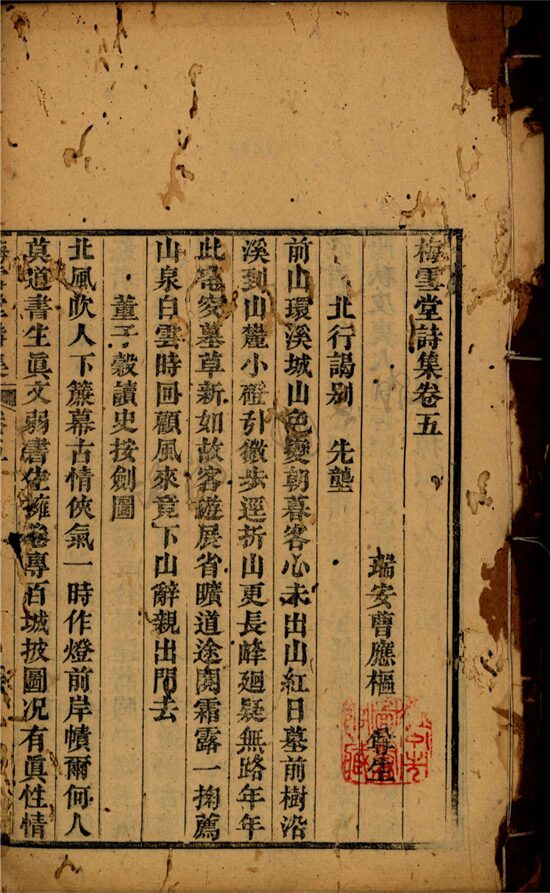 梅雪堂詩集卷五
瑞安曹應樞 尊生
北行謁别 先壟
前山環溪城山色變朝暮客心未出山紅日墓前樹沿
溪到山麓小磴引微步逕折山更長峰廻疑無路年年
此窀安墓草新如故客遊展省曠道途閱霜露一掬薦
山泉白雲時回顧風來竟下山辭親出門去
董子穀讀史按劍圖
北風吹人下簾幕古情俠氣一時作燈前岸幘爾何人
莫道書生眞文弱書擁卷專百城披圖况有眞性情